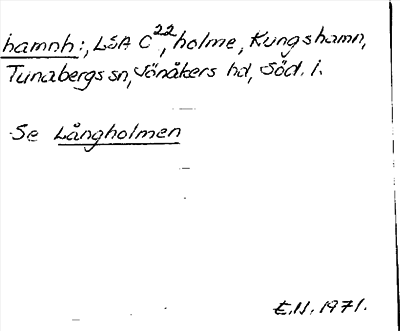 hamnh:, LSA C²²,holme, Kungshamn,
Tunabergs sn, Jönåkers hd, Söd. l.
Se Långholmen
E.N. 1971.